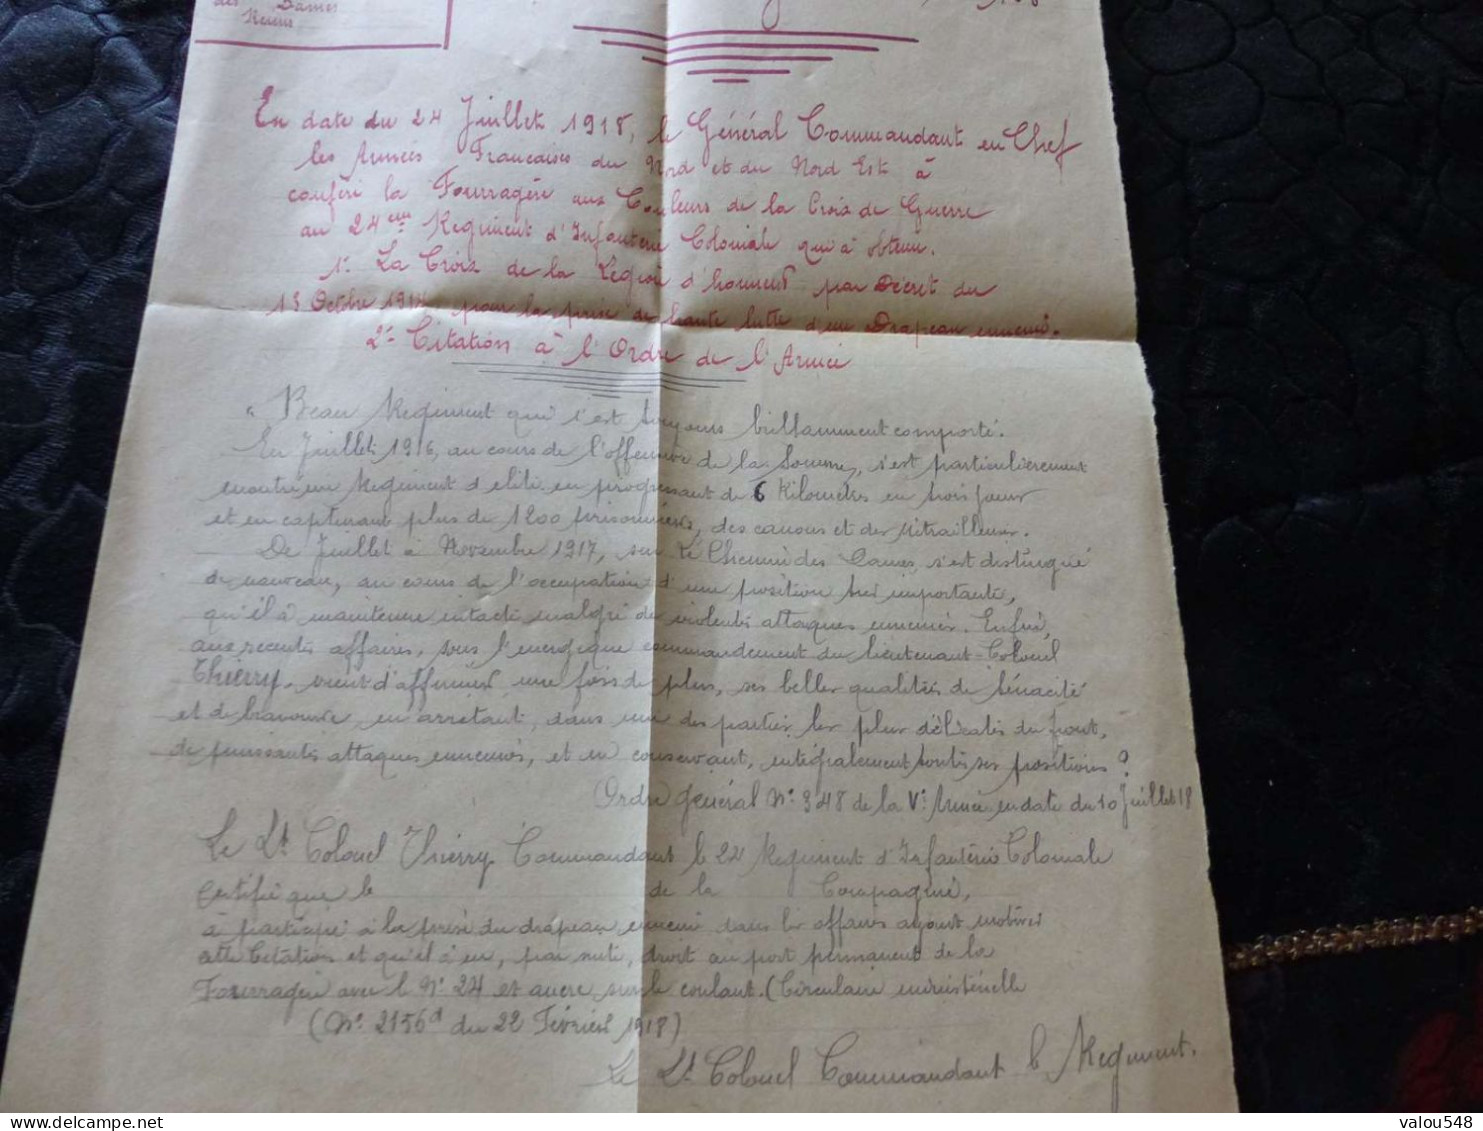 des Dames
En date du 24 Juillet 1918, le Général Commandant en Chef
les Armées Françaises du Nord et du Nord Est à
conféré la Fourragère aux Couleurs de la Croix de Guerre
au 24eme Regiment d'Infanterie Coloniale qui a obtenu.
1°. La Croix de la Légion d'honneur par Décret du
13 Octobre 1914 pour la prise de haute lutte d'un Drapeau ennemi.
2°- Citation à l'Ordre de l'Armée
" Beau Regiment qui s'est toujours brillamment comporté.
En Juillet 1916, au cours de l'offensive de la Somme, s'est particulièrement
montré un Regiment d'élite en progressant de 6 Kilomètres en trois jours
et en capturant plus de 1200 prisonniers, des canons et des Mitrailleuses.
De Juillet à Novembre 1917, sur Le Chemin des Dames, s'est distingué
de nouveau, au cours de l'occupation d'une position très importante,
qu'il à maintenue intacte malgré de violentes attaques ennemies. Enfin,
aux recentes affaires, sous l'energique commandement du Lieutenant-Colonel
Thierry. vient d'affirmer une fois de plus, ses belles qualités de ténacité
et de bravoure, en arretant, dans une des parties les plus délicates du front,
de puissantes attaques ennemies, et en conservant, intégralement toutes ses positions ?
Ordre Général N° 348 de la Ve Armée en date du 10 Juillet 18
Le Lt Colonel Thierry Commandant le 24 Regiment d'Infanterie Coloniale
Certifie que le de la Compagnie,
à participé à la prise du drapeau ennemi dans les affaires ayant motivés
cette Citation et qu'il à eu, par suite, droit au port permanent de la
Fourragère avec le N° 24 et ancre sur le coulant. (Circulaire ministérielle
(N° 2156d du 22 Février 1918)
Le Lt Colonel Commandant le Regiment.
valou548